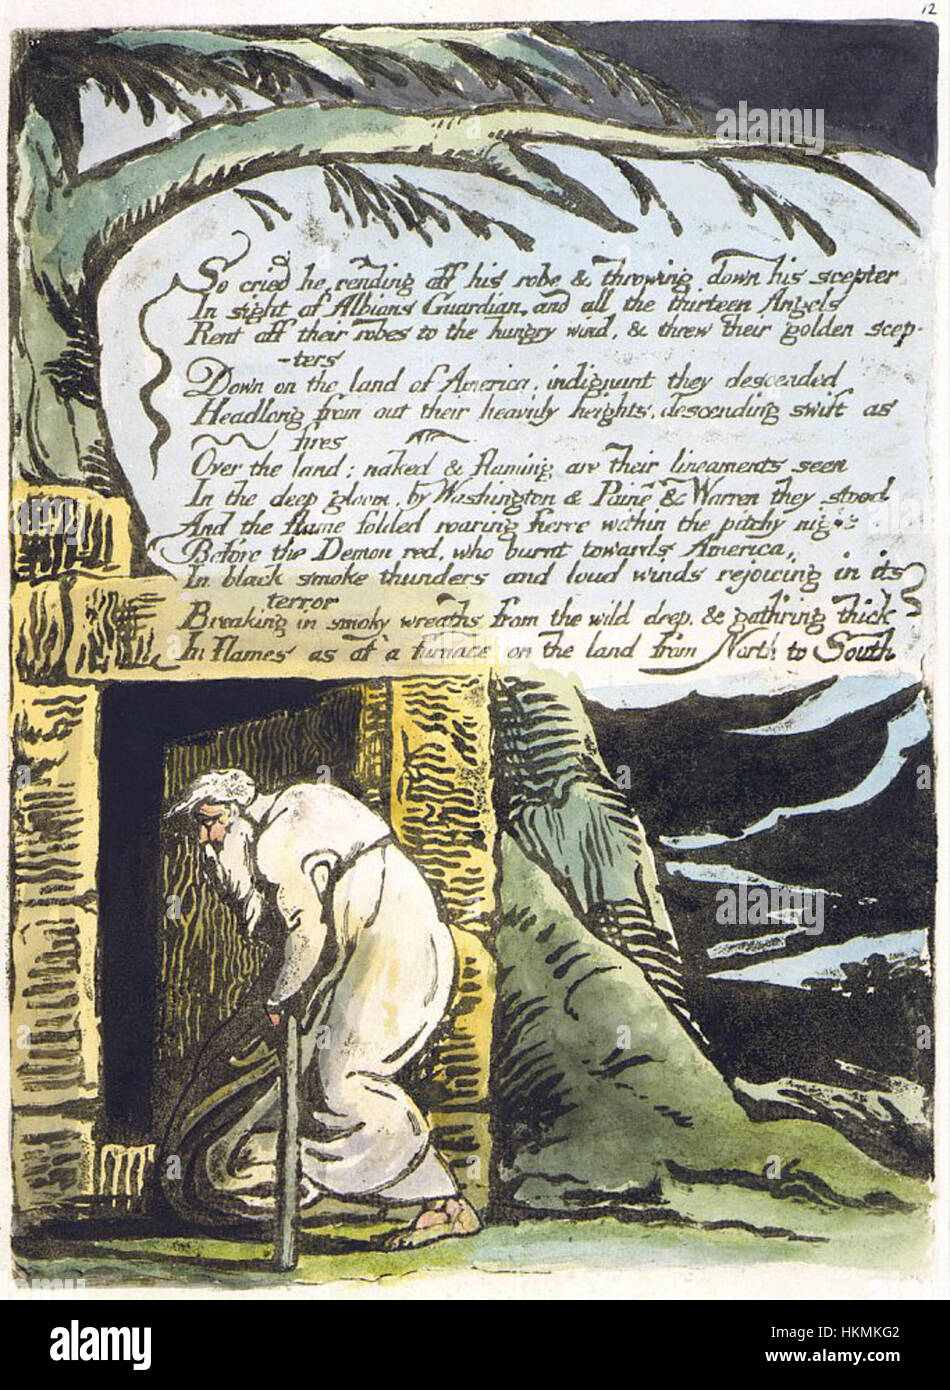 12
So cried he, rending off his robe & throwing down his scepter
In sight of Albions Guardian, and all the thirteen Angels
Rent off their robes to the hungry wind, & threw their golden scep-
-ters
Down on the land of America, indignant they descended
Headlong from out their heavily heights, descending swift as
fires
Over the land; naked & flaming are their lineaments seen
In the deep gloom, by Washington & Paine & Warren they stood
And the flame folded roaring fierce within the pitchy night
Before the Demon red, who burnt towards America,
In black smoke thunders and loud winds rejoicing in its
terror
Breaking in smoky wreaths from the wild deep, & gath'ring thick
In flames as of a furnace on the land from North to South
alamy stock photo
HKMKG2
www.alamy.com